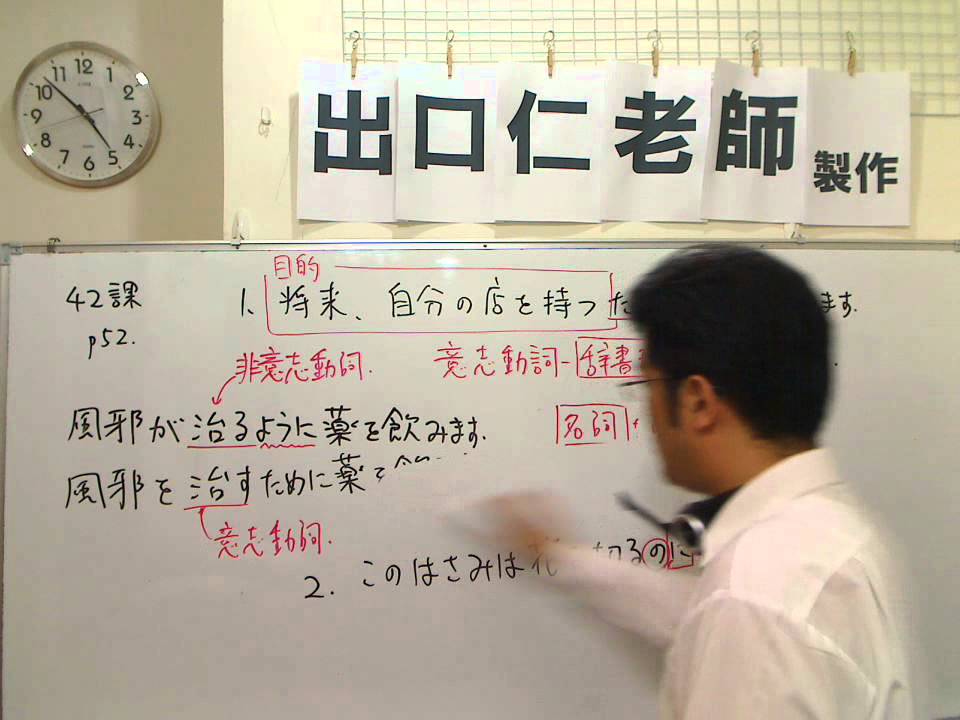 出口仁老師 製作
42課
p52.
目的
1. 将来、自分の店を持つた ます.
非意志動詞.
意志動詞-辞書
風邪が治るように薬を飲みます.
名詞+
風邪を治すために薬を飲
意志動詞.
2. このはさみは花 切るのに
12
1
2
3
4
5
6
7
8
9
10
11